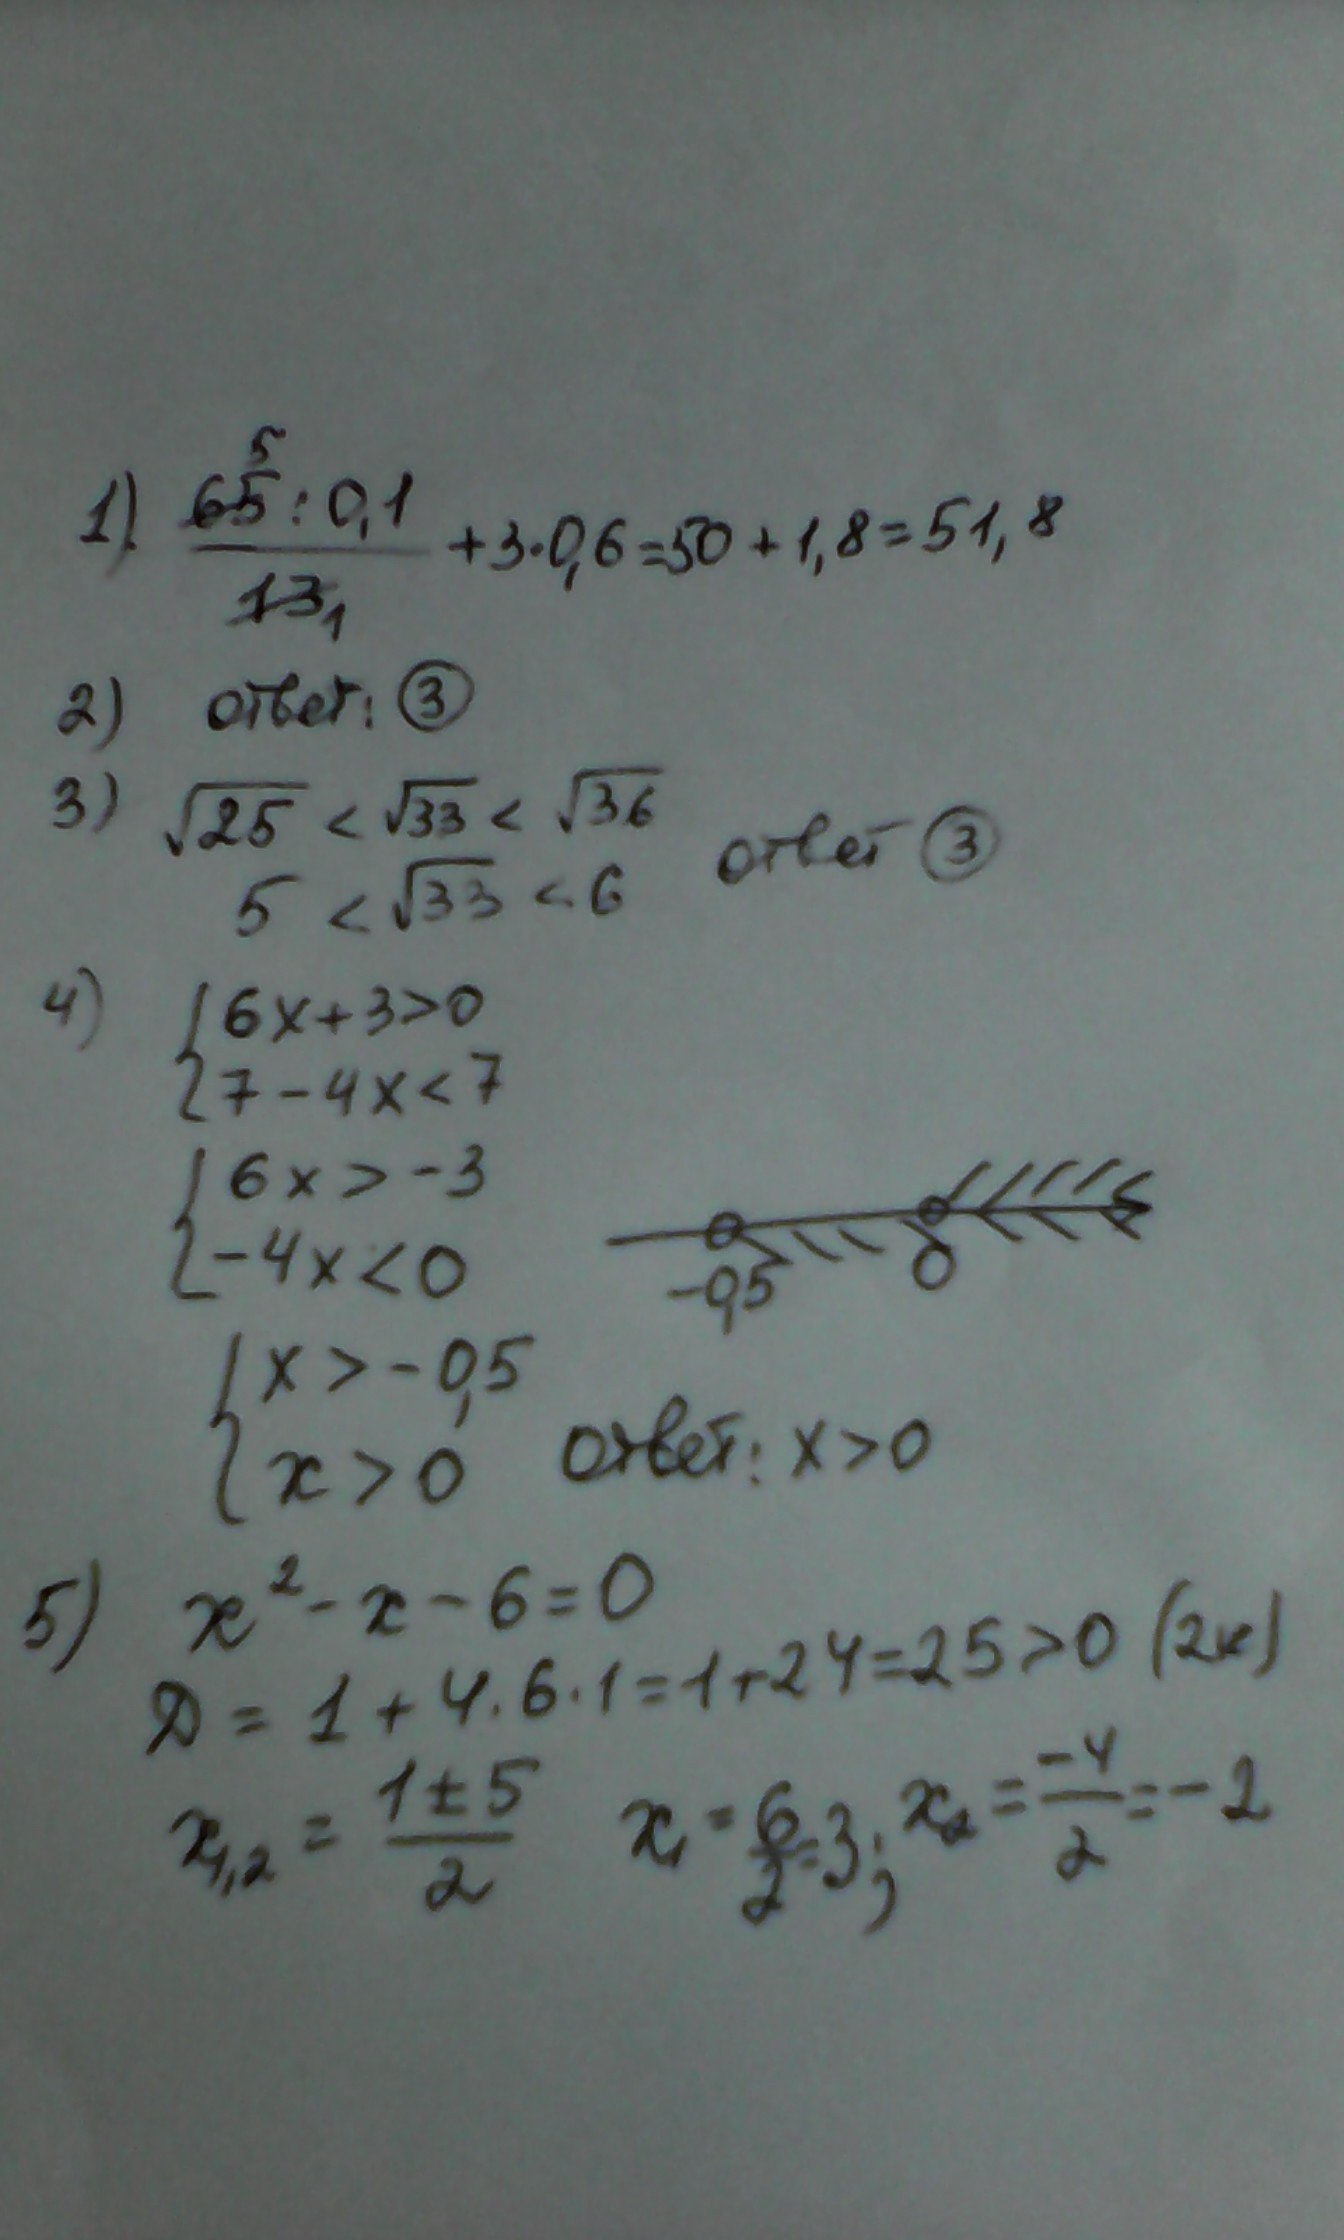 1) (6̶5̶⁵ : 0,1)/(1̶3̶₁) + 3·0,6 = 50 + 1,8 = 51,8
2) ответ: ③
3) √25 < √33 < √36
5 < √33 < 6 ответ ③
4) { 6x+3>0
7-4x<7
{ 6x>-3
-4x<0
-0,5 0
{ x>-0,5
x>0 ответ: x>0
5) x²-x-6=0
D = 1+4·6·1=1+24=25>0 (2к)
x₁,₂ = (1±5)/2 x₁ = 6/2=3; x₂ = -4/2=-2